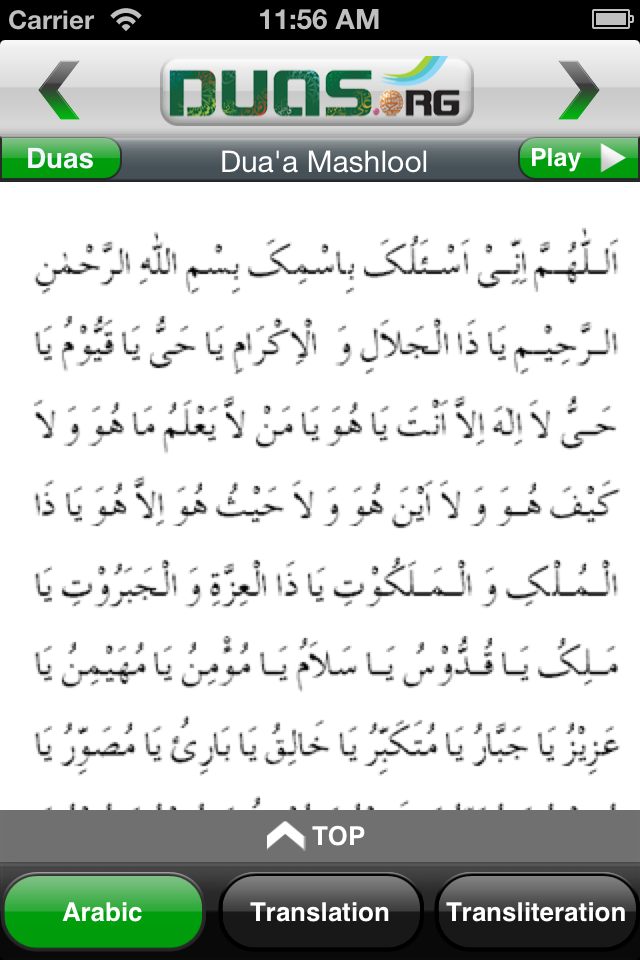 Carrier 11:56 AM
DUAS.ORG
Duas Dua'a Mashlool Play
اَللّٰهُمَّ اِنِّيْ اَسْئَلُكَ بِاسْمِكَ بِسْمِ اللهِ الرَّحْمٰنِ
الرَّحِيْمِ يَا ذَا الْجَلَالِ وَ الْاِكْرَامِ يَا حَيُّ يَا قَيُّوْمُ يَا
حَيُّ لاَ اِلٰهَ اِلاَّ اَنْتَ يَا هُوَ يَا مَنْ لاَّ يَعْلَمُ مَا هُوَ وَ لاَ
كَيْفَ هُوَ وَ لاَ اَيْنَ هُوَ وَ لاَ حَيْثُ هُوَ اِلاَّ هُوَ يَا ذَا
الْمُلْكِ وَ الْمَلَكُوْتِ يَا ذَا الْعِزَّةِ وَ الْجَبَرُوْتِ يَا
مَلِكُ يَا قُدُّوْسُ يَا سَلاَمُ يَا مُؤْمِنُ يَا مُهَيْمِنُ يَا
عَزِيْزُ يَا جَبَّارُ يَا مُتَكَبِّرُ يَا خَالِقُ يَا بَارِئُ يَا مُصَوِّرُ يَا
TOP
Arabic Translation Transliteration